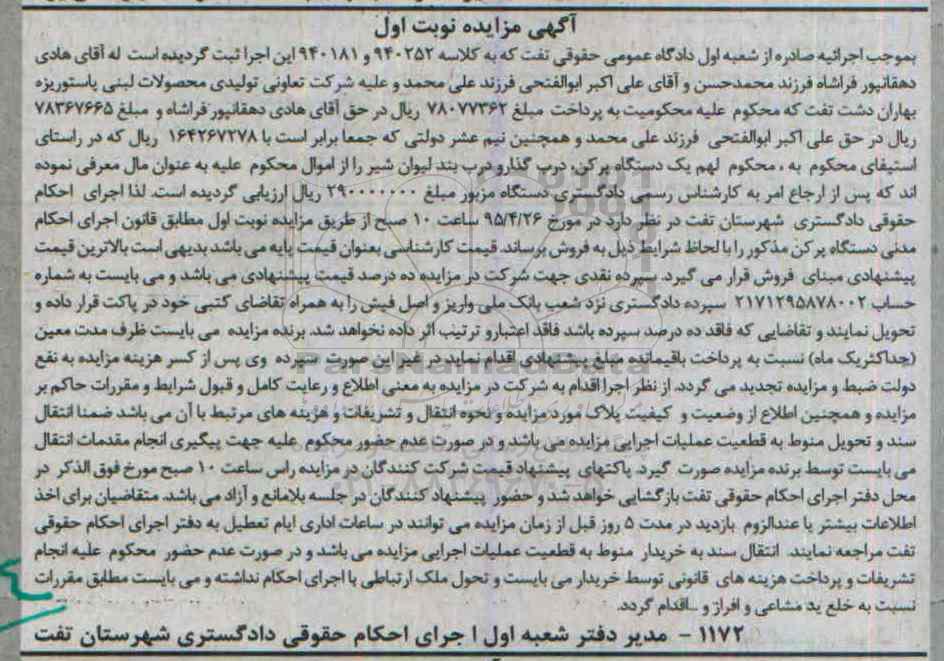 آگهی مزایده نوبت اول
بموجب اجرائیه صادره از شعبه اول دادگاه عمومی حقوقی تفت که به کلاسه ۹۴۰۲۵۲ و ۹۴۰۱۸۱ این اجرا ثبت گردیده است له آقای هادی
دهقانپور فراشاه فرزند محمدحسن و آقای علی اکبر ابوالفتحی فرزند علی محمد و علیه شرکت تعاونی تولیدی محصولات لبنی پاستوریزه
بهاران دشت تفت که محکوم علیه محکومیت به پرداخت مبلغ ۷۸۰۷۷۳۶۲ ریال در حق آقای هادی دهقانپور فراشاه و مبلغ ۷۸۳۶۷۶۶۵
ریال در حق علی اکبر ابوالفتحی فرزند علی محمد و همچنین نیم عشر دولتی که جمعا برابر است با ۱۶۴۲۶۷۲۷۸ ریال که در راستای
استیفای محکوم به ، محکوم لهم یک دستگاه پرکن، درب گذار و درب بند لیوان شیر را از اموال محکوم علیه به عنوان مال معرفی نموده
اند که پس از ارجاع امر به کارشناس رسمی دادگستری دستگاه مزبور مبلغ ۲۹۰۰۰۰۰۰۰ ریال ارزیابی گردیده است. لذا اجرای احکام
حقوقی دادگستری شهرستان تفت در نظر دارد در مورخ ۹۵/۴/۲۶ ساعت ۱۰ صبح از طریق مزایده نوبت اول مطابق قانون اجرای احکام
مدنی دستگاه پرکن مذکور را با لحاظ شرایط ذیل به فروش برساند. قیمت کارشناسی بعنوان قیمت پایه می باشد بدیهی است بالاترین قیمت
پیشنهادی مبنای فروش قرار می گیرد. سپرده نقدی جهت شرکت در مزایده ده درصد قیمت پیشنهادی می باشد و می بایست به شماره
حساب ۲۱۷۱۲۹۵۸۷۸۰۰۲ سپرده دادگستری نزد شعب بانک ملی واریز و اصل فیش را به همراه تقاضای کتبی خود در پاکت قرار داده و
تحویل نمایند و تقاضایی که فاقد ده درصد سپرده باشد فاقد اعتبار و ترتیب اثر داده نخواهد شد. برنده مزایده می بایست ظرف مدت معین
(حداکثر یک ماه) نسبت به پرداخت باقیمانده مبلغ پیشنهادی اقدام نماید در غیر این صورت سپرده وی پس از کسر هزینه مزایده به نفع
دولت ضبط و مزایده تجدید می گردد. از نظر اجرا اقدام به شرکت در مزایده به معنی اطلاع و رعایت کامل و قبول شرایط و مقررات حاکم بر
مزایده و همچنین اطلاع از وضعیت و کیفیت پلاک مورد مزایده و نحوه انتقال و تشریفات و هزینه های مرتبط با آن می باشد ضمنا انتقال
سند و تحویل منوط به قطعیت عملیات اجرایی مزایده می باشد و در صورت عدم حضور محکوم علیه جهت پیگیری انجام مقدمات انتقال
می بایست توسط برنده مزایده صورت گیرد. پاکتهای پیشنهاد قیمت شرکت کنندگان در مزایده راس ساعت ۱۰ صبح مورخ فوق الذکر در
محل دفتر اجرای احکام حقوقی تفت بازگشایی خواهد شد و حضور پیشنهاد کنندگان در جلسه بلامانع و آزاد می باشد. متقاضیان برای اخذ
اطلاعات بیشتر یا عندالزوم بازدید در مدت ۵ روز قبل از زمان مزایده می توانند در ساعات اداری ایام تعطیل به دفتر اجرای احکام حقوقی
تفت مراجعه نمایند. انتقال سند به خریدار منوط به قطعیت عملیات اجرایی مزایده می باشد و در صورت عدم حضور محکوم علیه انجام
تشریفات و پرداخت هزینه های قانونی توسط خریدار می بایست و تحول ملک ارتباطی با اجرای احکام نداشته و می بایست مطابق مقررات
نسبت به خلع ید مشاعی و افراز و ...اقدام گردد.
۱۱۷۲ - مدیر دفتر شعبه اول ا جرای احکام حقوقی دادگستری شهرستان تفت
ParsNamadData